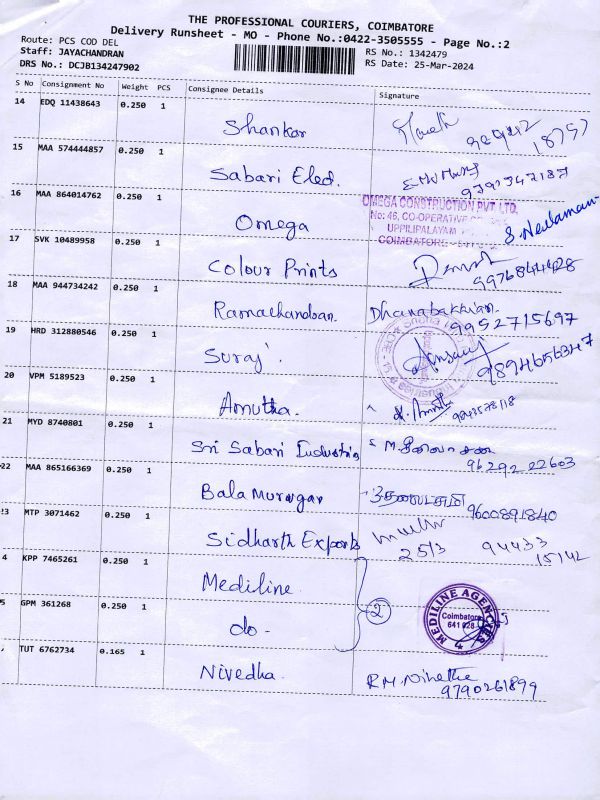 THE PROFESSIONAL COURIERS, COIMBATORE
Delivery Runsheet - MO - Phone No.:0422-3505555 - Page No.:2
Route: PCS COD DEL
RS No.: 1342479
Staff: JAYACHANDRAN
RS Date: 25-Mar-2024
DRS No.: DCJB134247902
S No Consignment No Weight PCS Consignee Details Signature
14 EDQ 11438643 0.250 1 Shankar 98942 18757
15 MAA 574444857 0.250 1 Sabari Elect. 9791347187
16 MAA 864014762 0.250 1 Omega
OMEGA CONSTRUCTION PVT. LTD.
No: 46, CO-OPERATIVE
UPPILIPALAYAM
COIMBATORE
17 SVK 10489958 0.250 1 Colour Prints 9976844428
18 MAA 944734242 0.250 1 Ramachandran Dhanabakkiam 9952715697
19 HRD 312880546 0.250 1 Suraj 9894656347
20 VPM 5189523 0.250 1 Amutha
21 MYD 8740801 0.250 1 Sri Sabari Industries 96292 22603
22 MAA 865166369 0.250 1 Bala Murugan 9600891840
23 MTP 3071462 0.250 1 Sidharth Exports 25/3 94433 15142
4 KPP 7465261 0.250 1 Mediline
2
MEDILINE AGENCIES
Coimbatore
641 028
5 GPM 361268 0.250 1 do-
TUT 6762734 0.165 1 Nivedha R.M. 9790261899